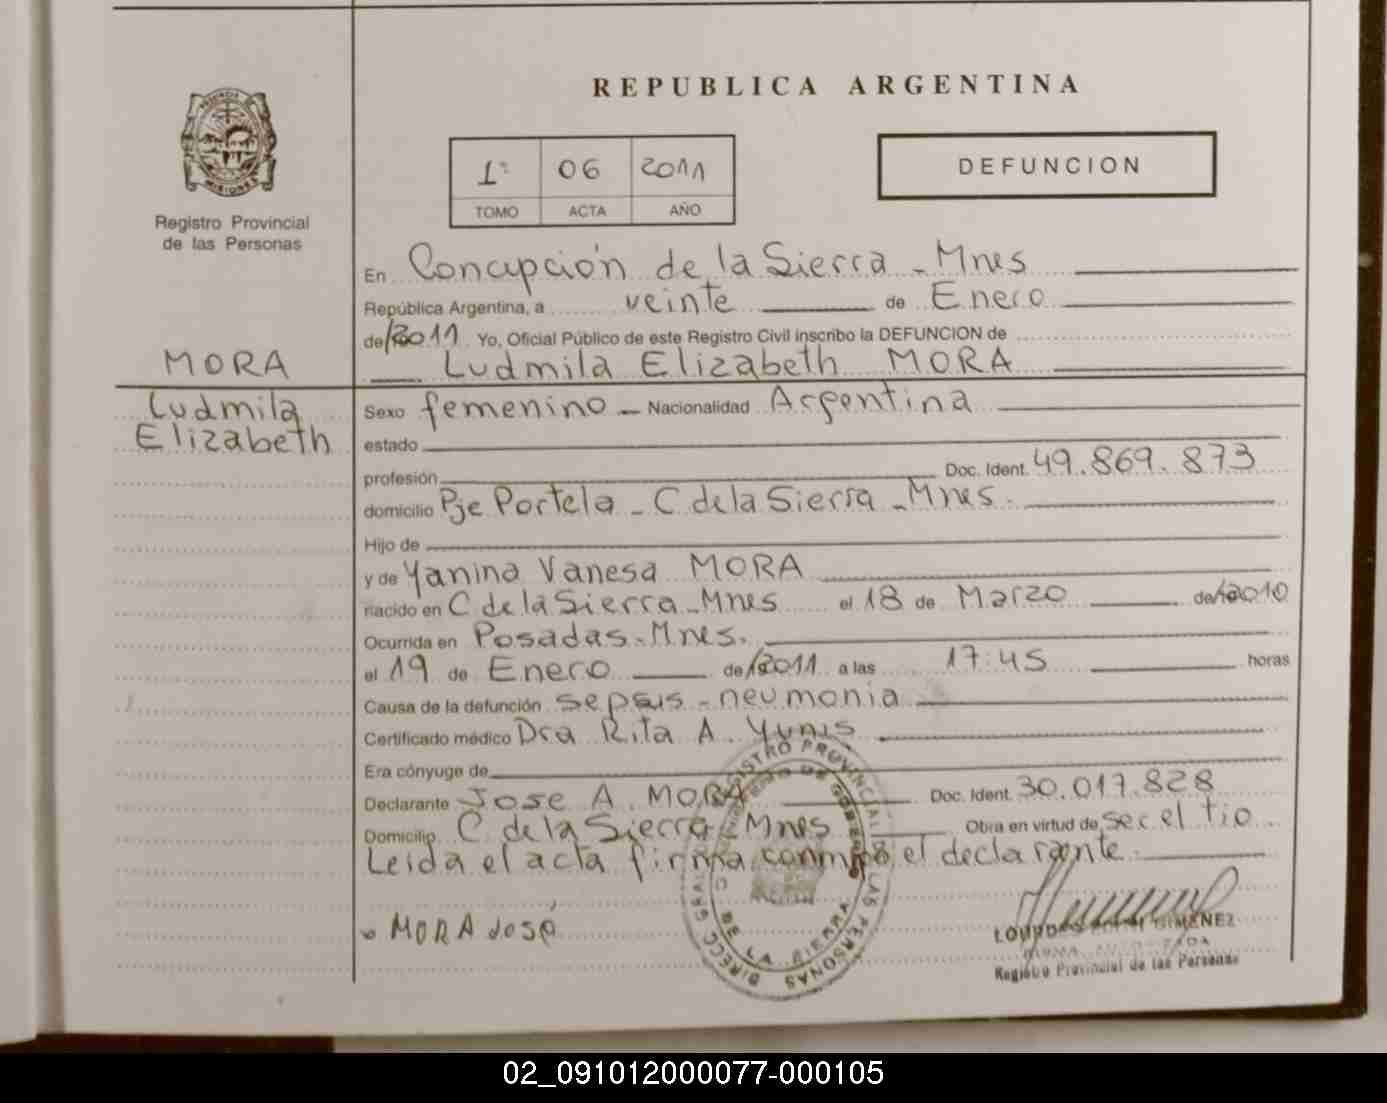 REPUBLICA ARGENTINA
PROVINCIA DE
MISIONES
Registro Provincial
de las Personas
1º 06 2011
TOMO ACTA AÑO
DEFUNCION
En Concepción de la Sierra - Mnes
República Argentina, a veinte de Enero
de 2011 Yo, Oficial Público de este Registro Civil inscribo la DEFUNCION de
MORA
Ludmila Elizabeth MORA
Ludmila
Elizabeth
Sexo femenino - Nacionalidad Argentina
estado
profesión Doc. Ident. 49.869.873
domicilio Pje Portela - C de la Sierra - Mnes.
Hijo de
y de Yanina Vanesa MORA
nacido en C de la Sierra - Mnes el 18 de Marzo de 2010
Ocurrida en Posadas - Mnes.
el 19 de Enero de 2011 a las 17:45 horas
Causa de la defunción sepsis - neumonia
Certificado médico Dra Rita A. Yunis
Era cónyuge de
Declarante Jose A. MORA Doc. Ident. 30.017.828
Domicilio C de la Sierra - Mnes Obra en virtud de ser el tio.
Leida el acta firma conmigo el declarante.
MORA José
DIRECC GRAL REGISTRO PROVINCIAL DE LAS PERSONAS
DE LA SIERRA
GIMENEZ
Registro Provincial de las Personas
02_091012000077-000105